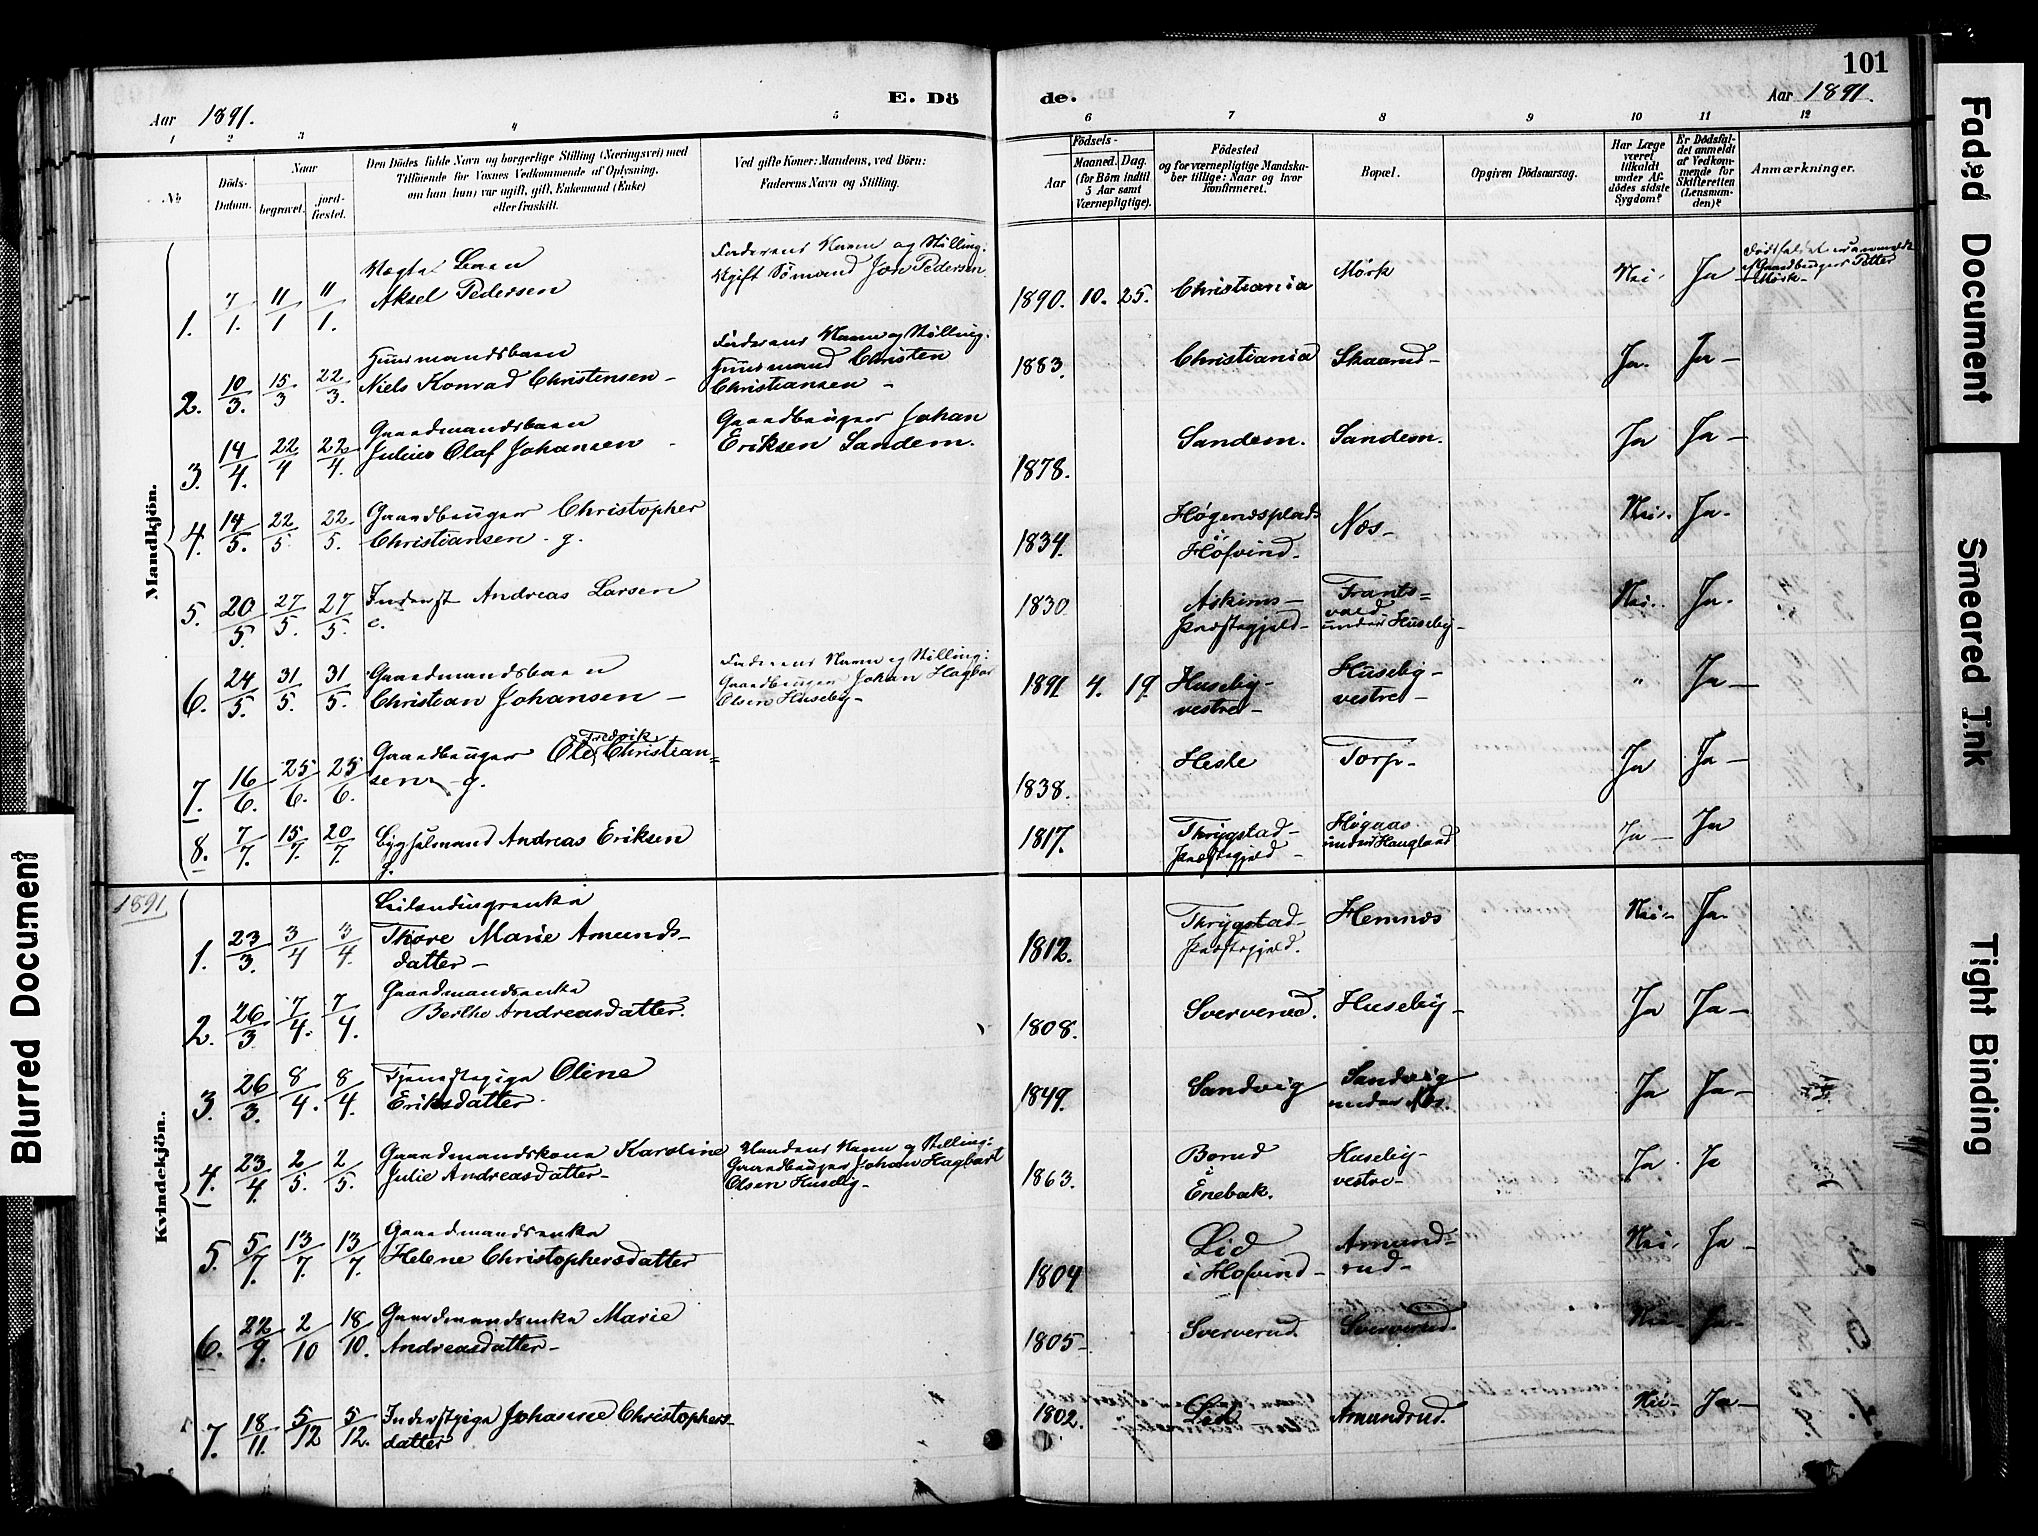 101
E. Dö de.
Aar 1891.
Aar 1891.
1 2 3 4 5 6 7 8 9 10 11 12
No
Döds-
Datum.
Naar
begravet.
jord-
fæstet.
Den Dödes fulde Navn og borgerlige Stilling (Næringsvei) med
Tilföiende for Voxnes Vedkommende af Oplysning,
om han (hun) var ugift, gift, Enkemand (Enke)
eller fraskilt.
Ved gifte Koner: Mandens, ved Börn:
Faderens Navn og Stilling.
Aar
Födsels-
Maaned. Dag.
(for Börn indtil
5 Aar samt
Værnepligtige).
Födested
og for værnepligtige Mandska-
ber tillige: Naar og hvor
konfirmeret.
Bopæl.
Opgiven Dödsaarsag.
Har Læge
været
tilkaldt
under Af-
dödes sidste
Sygdom?
Er Dödsfal-
det anmeldt
af Vedkom-
mende for
Skifteretten
(Lensman-
den)?
Anmærkninger.
Mandkjön.
Uægte Barn
Aksel Pedersen
Faderens Navn og Stilling:
Ugift Sömand Jon Pedersen
1. 7/1. 11/1 11/1. 1890. 10. 25. Christiania Mörk Nei. Ja
Dödsfaldet er anmeldt
af Gaardbruger Petter
Mörk-
Huusmandsbarn
Niels Konrad Christensen -
Faderens Navn og Stilling.
Huusmand Christen
Christiansen -
2. 10/3. 15/3 22/3. 1883. Christiania Skaarud- Ja. Ja-
Gaardmandsbarn
Julius Olaf Johansen -
Gaardbruger Johan
Eriksen Sandem.
3. 14/4. 22/4 22/4. 1878. Sandem. Sandem. Ja Ja-
Gaardbruger Christopher
Christiansen - g.
4. 14/5. 22/5 22/5. 1834. Høgenesplads
i
Høfvind. Nes- Nei. Ja.
Inderst Andreas Larsen
e.
5. 20/5 27/5. 27/5. 1830. Askims-
Præstegjeld- Frants=
vald
under Huseby- Nei. Ja.
Gaardmandsbarn
Christian Johansen -
Faderens Navn og Stilling:
Gaardbruger Johan Hagbar
Olsen Huseby-
6. 24/5. 31/5. 31/5. 1891 4. 19. Huseby-
vestre- Huseby-
vestre- " Ja-
Gaardbruger Ole Fredrik Christian=
sen - g.
7. 16/6. 25/6. 25/6. 1838. Heske Torp- Ja Ja-
Bygselmand Andreas Eriksen
g.
8. 7/7. 15/7. 20/7 1817. Thrygstad-
Præstegjeld- Høgaas
under Haugland Ja- Ja
Kvindekjön.
1891
Leilendingsenke
Thore Marie Amunds-
datter-
1. 23/3. 3/4 3/4. 1812. Thrygstad-
Præstegjeld. Hemnes Nei- Ja.
Gaardmandsenke
Berthe Andreasdatter.
2. 26/3 7/4. 7/4. 1808. Sververud. Huseby- Ja Ja-
Tjenestepige Oline
Eriksdatter.
3. 26/3. 8/4. 8/4. 1849. Sandvig Sandvig
under Nes. Ja Ja-
Gaardmandskone Karoline
Julie Andreasdatter-
Mandens Navn og Stilling:
Gaardbruger Johan Hagbart
Olsen Huseby-
4. 23/4. 2/5. 2/5. 1863. Borud
i
Enebak. Huseby-
vestre- Ja. Ja
Gaardmandsenke
Helene Christophersdatter
5. 5/7. 13/7. 13/7. 1804 Lid
i Hofvind- Amund-
rud- Nei. Ja-
Gaardmandsenke Marie
Andreasdatter-
6. 22/9. 2/10 18/10. 1805- Sververud. Sververud. Nei- Ja-
Inderstpige Johanne Christophers-
datter
7. 18/11. 5/12 5/12. 1802. Lid Amundrud. Nei- Ja-
Faded Document
Smeared Ink
Tight Binding
Blurred Document